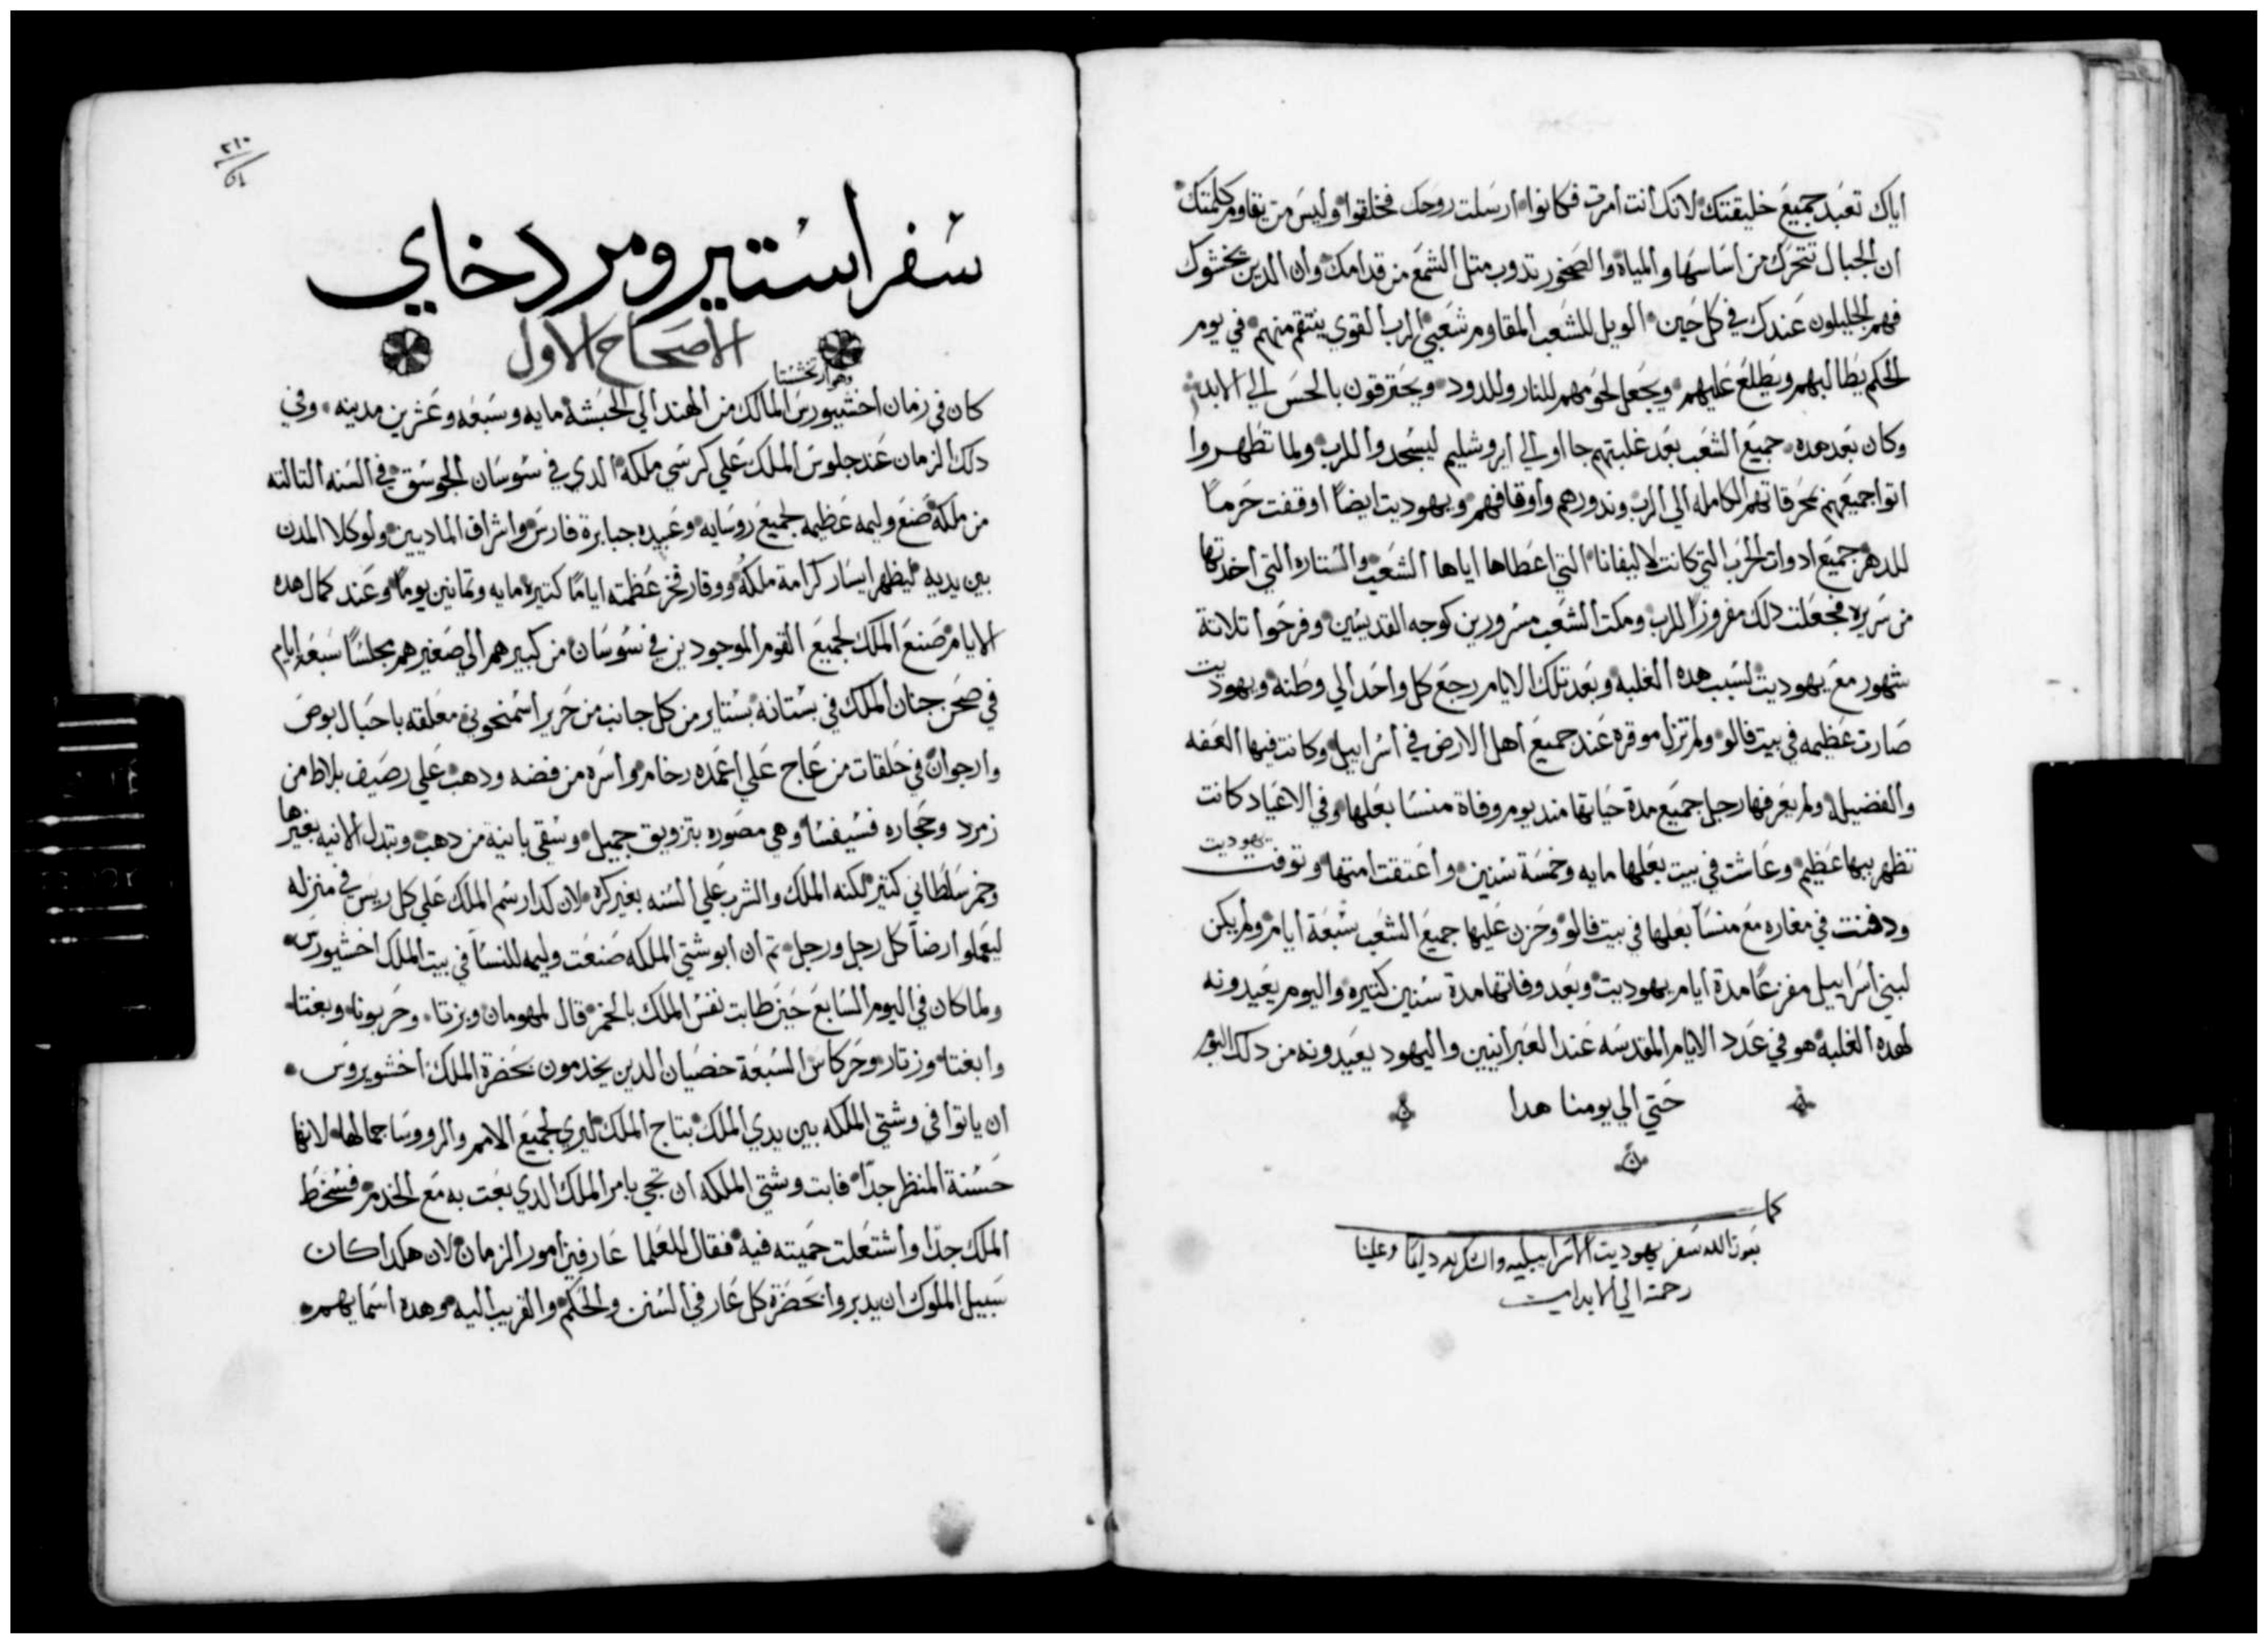 اياك تعبد جميع خليقتك لانك انت أمرت فكانوا ارسلت روحك فخلقوا وليس من يقاوم كلمتك
ان الجبال تتحرك من أساسها والمياة والصخور تدوب متل الشمع من قدامك وان الدين يخشوك
فهم الجليلون عندك في كل حين الويل للشعب المقاوم شعبي الرب القوي ينتقم منهم في يوم
الحكم يطالبهم ويطلع عليهم ويجعل لحومهم للنار وللدود ويحترقون بالحس الي الابد
وكان بعد هده جميع الشعب بعد غلبتهم جااو الي ايروشليم ليسجدوا للرب ولما تطهروا
اتوا جميعهم بمحرقاتهم الكامله الي الرب وندورهم وأوقافهم ويهوديت ايضاً اوقفت حرماً
للدهر جميع ادوات الحرب التي كانت لاليفانا التي اعطاها اياها الشعب والستاره التي أخدتها
من سريره فجعلت دلك مفروزاً للرب ومكت الشعب مسرورين كوجه القديسين وفرحوا تلاتة
شهور مع يهوديت لسبب هده الغلبه وبعد تلك الايام رجع كل واحد الي وطنه ويهوديت
صارت عظيمه في بيت فالو ولم تزل موقره عند جميع أهل الارض في أسراييل وكانت فيها العفه
والفضيله ولم يعرفها رجل جميع مدة حياتها مند يوم وفاة منسا بعلها وفي الاعياد كانت
تظهر ببها عظيم وعاشت في بيت بعلها مايه وخمسة سنين وأعتقت امتها وتوفت يهوديت
ودفنت في مغاره مع منسا بعلها في بيت فالو وحزن عليها جميع الشعب سبعة أيام ولم يكن
لبني أسراييل مفزعاً مدة أيام يهوديت وبعد وفاتها مدة سنين كتيره واليوم يعيدونه
لهده الغلبه هو في عدد الايام المقدسه عند العبرانيين واليهود يعيدونه من دلك اليوم
حتي الي يومنا هدا
كمل
بعون الله سفر يهوديت الاسراييليه والشكر لله دايماً وعلينا
رحمته الي الابد امين
٢١٠
سفر استير ومردخاي
الاصحاح الاول
وهو ارتخششتا
كان في زمان أخشيورس المالك من الهند الي الحبشه مايه وسبعه وعشرين مدينه وفي
دلك الزمان عند جلوس الملك علي كرسي ملكه الدي في سوسان الجوسق في السنه التالته
من ملكه صنع وليمه عظيمه لجميع روسايه وعبيده جبابرة فارس واشراف الماديين ولوكلا المدن
بين يديه ليظهر ايسار كرامة ملكه ووقار فخر عظمته اياماً كتيره مايه وتمانين يوماً وعند كمال هده
الايام صنع الملك لجميع القوم الموجودين في سوسان من كبيرهم الي صغيرهم مجلساً سبعة ايام
في صحن جنان الملك في بستانه بستاير من كل جانب من حرير اسمنجوني معلقه باحبال بوص
وارجوان في حلقات من عاج علي أعمده رخام وأسره من فضه ودهب علي رصيف بلاط من
زمرد وحجاره فسيفسا وهي مصوره بتزويق جميل وسقي بانية من دهب وبتدل الانيه بغيرها
وخمر سلطاني كتير لكنه الملك والشرب علي السنه بغير كره لان كدا رسم الملك علي كل ريس في منزله
ليعملوا رضا كل رجل ورجل تم ان ابوشتي الملكه صنعت وليمه للنسا في بيت الملك اخشيورس
ولما كان في اليوم السابع حين طابت نفس الملك بالخمر قال لمهومان وبزتا وحربونا وبغتا
وابغتا وزتار وحركاس السبعة خصيان الدين يخدمون بحضرة الملك أخشويروس
ان ياتوا في وشتي الملكه بين يدي الملك بتاج الملك ليري لجميع الامم والرووسا جمالها لانها
حسنة المنظر جداً فابت وشتي الملكه ان تجي بامر الملك الدي بعت به مع الخدم فسخط
الملك جداً وأشتعلت حميته فيه فقال للعلما عارفين أمور الزمان لان هكدا كان
سبيل الملوك ان يدبروا بحضرة كل عارفي السنن والحكم والقريب اليه وهده اسمايهم